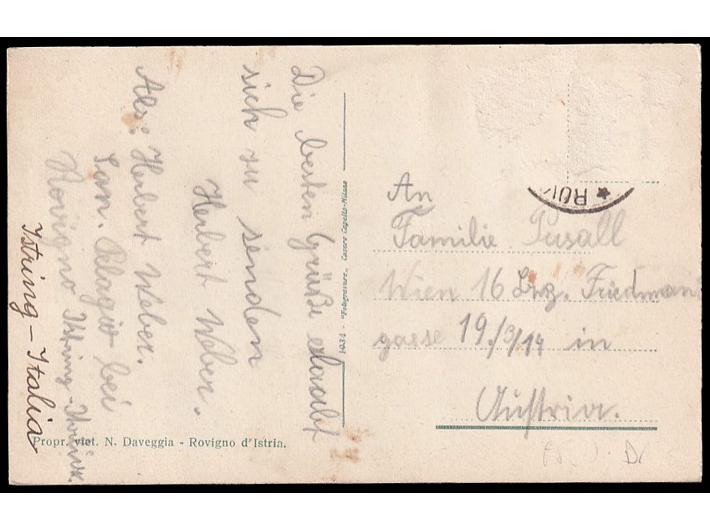 Die besten Grüße erlaubt
sich zu senden
Herbert Weber.
Abs: Herbert Weber.
San. Pelagio bei
Rovigno Istrien
Istring - Italia
Propr. viet. N. Daveggia - Rovigno d'Istria.
1031 - "Fotogravure" Cesare Capello-Milano
ROV
An
Familie Pusall
Wien 16 Bez. Friedmann
gasse 19/3/14 in
Austria.